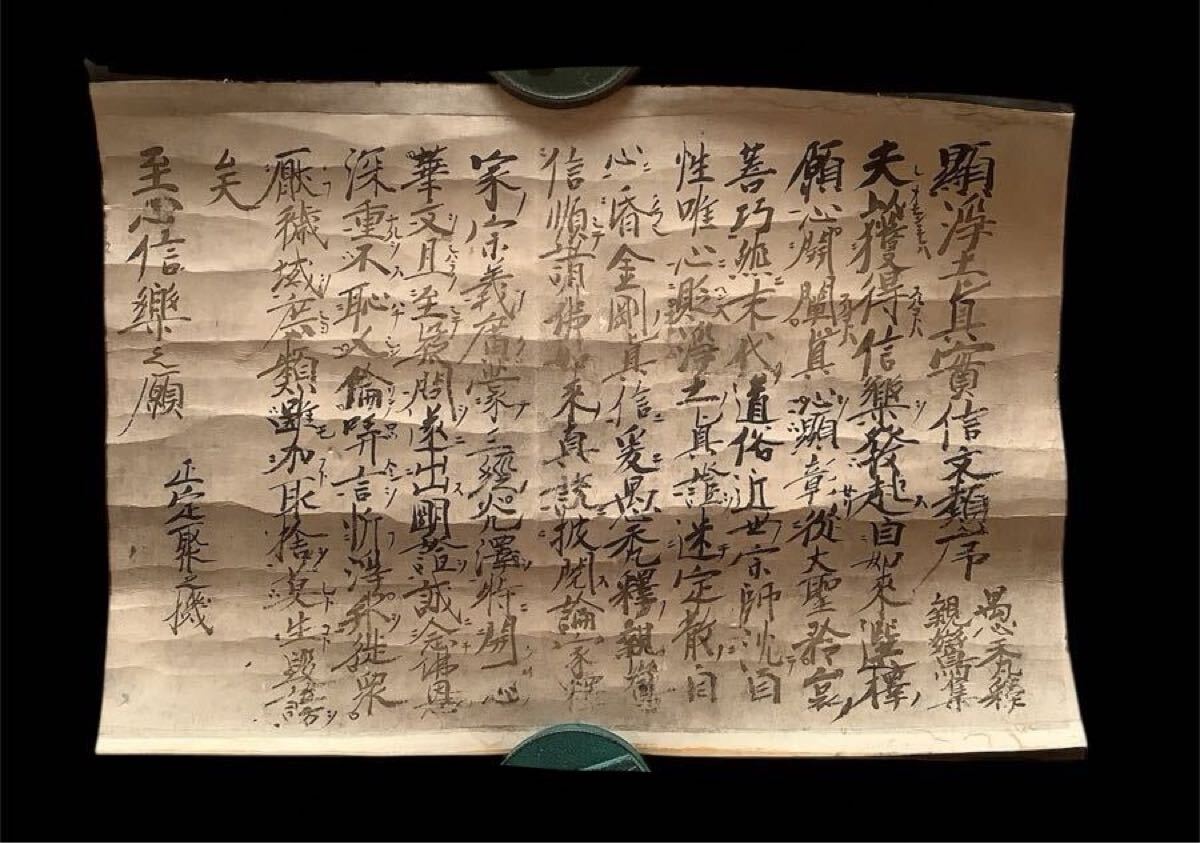 顯淨土真實信文類序
愚禿釋
親鸞集
夫以獲得信樂發起自如來選擇
願心開闡真心顯彰從大聖矜哀
善巧然末代道俗近世宗師沈自
性唯心貶淨土真證迷定散自
心昏金剛真信爰愚禿釋親鸞
信順諸佛如來真說披閱論家釋
家宗義廣蒙三經光澤特開一心
華文且至疑問遂出明證誠念佛恩
深重不恥人倫哢言忻淨邦徒衆
厭穢域庶類雖加取捨莫生毀謗
矣
至心信樂之願
正定聚之機